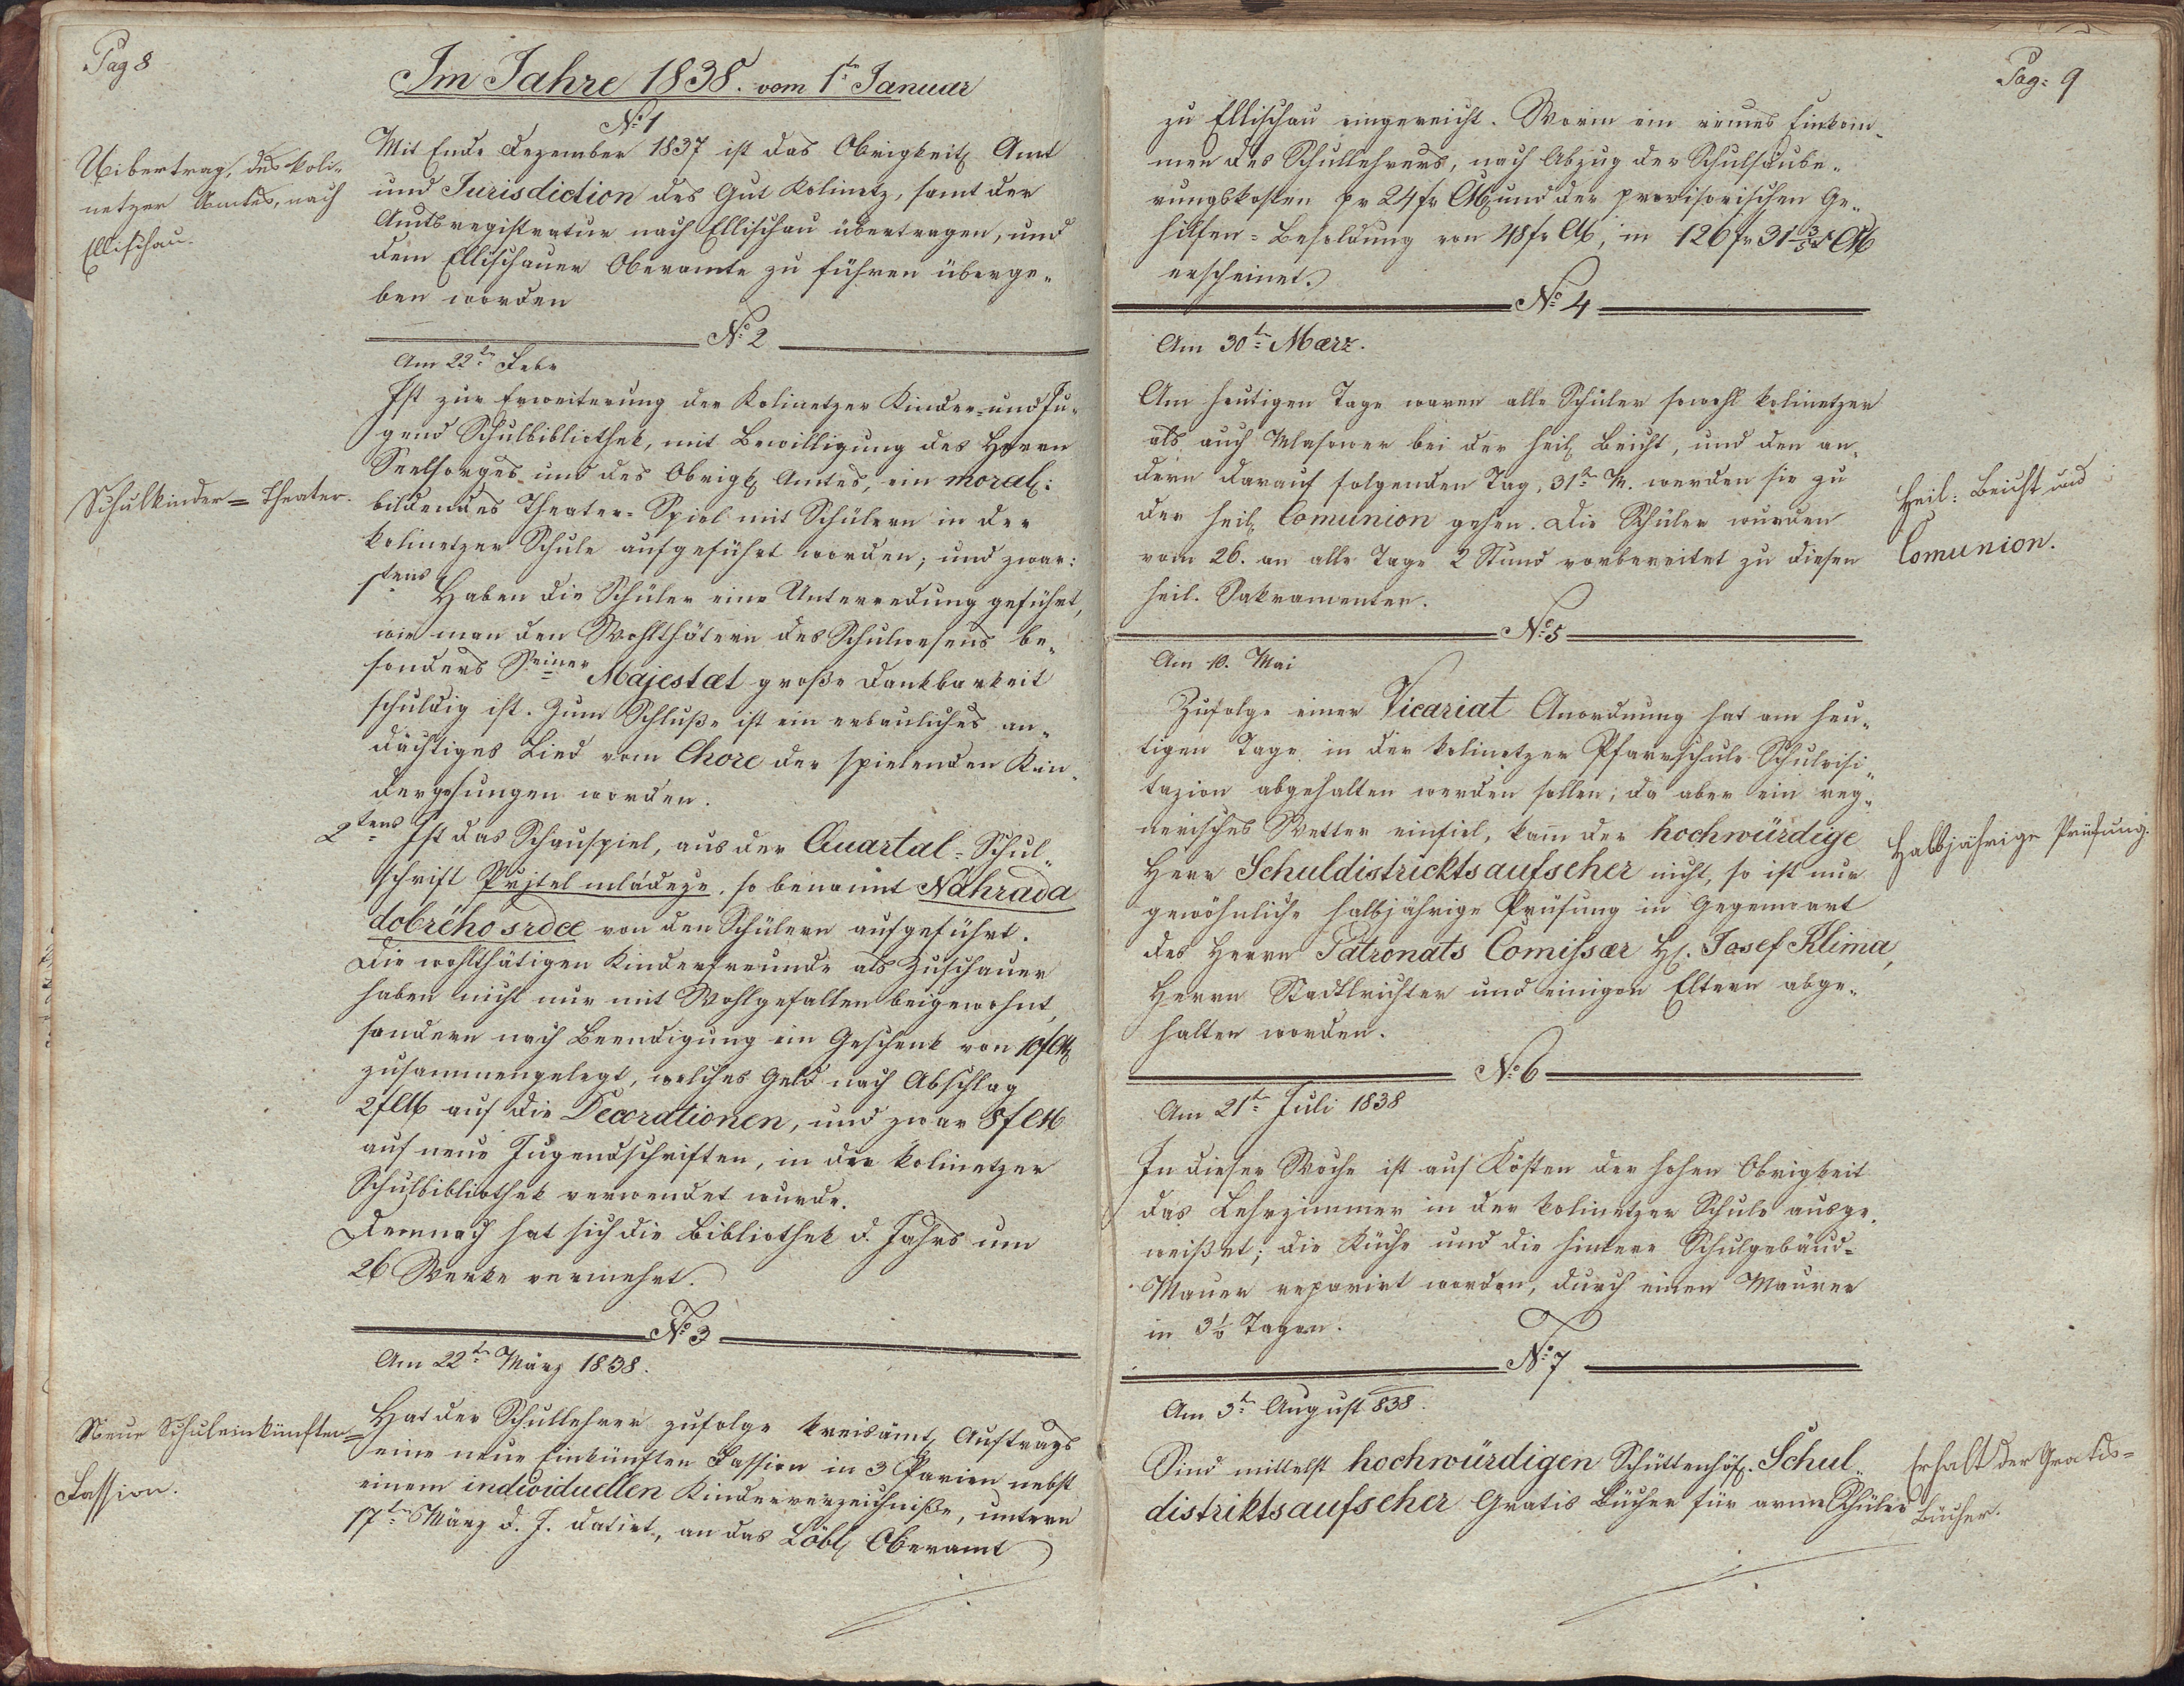 Pag 8
Im Jahre 1838. vom 1t Januar
No 1
Uibertrag. des koli-
netzer Amtes, nach
Ellischau.
Mit Ende Dezember 1837 ist das Obrigkeitl. Amt
und Jurisdiction des Gut Kolinetz, samt der
Amtsregistratur nach Ellischau übertragen, und
dem Ellischauer Oberamte zu führen überge-
ben worden
No 2
Am 22tn Febr
Schulkinder = Theater.
Ist zur Erweiterung der Kolinetzer Kinder- und Ju-
gend Schulbibliothek, mit Bewilligung des Herrn
Seelsorges und des Obrigk. Amtes, ein moral:
bildendes Theater-Spiel mit Schülern in der
kolinetzer Schule aufgeführt worden, und zwar:
1tens Haben die Schüler eine Unterredung geführt,
wie man den Wohlthätern des Schulwesens be-
sonders Seiner Majestæt große Dankbarkeit
schuldig ist. Zum Schluße ist ein erbauliches an-
dächtiges Lied vom Chore der spielenden Kin-
der gesungen worden.
2tens Ist das Schauspiel, aus der Quartal-Schul-
schrift Přjtel mládeže, so benannt Náhrada
dobrého srdce von den Schülern aufgeführt.
Die wohlthätigen Kinderfreunde als Zuschauer
haben nicht nur mit Wohlgefallen beigewohnt,
sondern nach Beendigung ein Geschenk von 10f CM
zusammengelegt, welches Geld nach Abschlag
2f CM auf die Decorationen, und zwar 8f CM
auf neue Jugendschriften, in der kolinetzer
Schulbibliothek verwendet wurde.
Demnach hat sich die Bibliothek d. Jahrs um
26 Werke vermehrt.
No 3
Am 22tn März 1838.
Neue Schuleinkünften=
Fassion.
Hat der Schullehrer zufolge kreisämt. Auftrags
eine neue Einkünften Fassion in 3 Parien nebst
einem individuellen Kinderverzeichniße, unterm
17tn März d. J. datirt, an das Löbl. Oberamt
Pag: 9
zu Ellischau eingereicht. Worin ein reines Einkom-
men des Schullehrers, nach Abzug der Schulsäube-
rungskosten pr 24 fr CM und der provisorischen Ge-
hilfen-Besoldung von 48 fr CM, in 126 fr 31 3/5 CM
erscheinet.
No 4
Am 30tn Mærz.
Am heutigen Tage waren alle Schüler sowohl kolinetzer
als auch Mlasower bei der heil. Beicht, und den an-
dern darauf folgenden Tag, 31tn M. werden sie zu
der heil. Comunion gehen. Die Schüler wurden
vom 26. an alle Tage 2 Stund vorbereitet zu diesen
heil. Sakramenten.
Heil: Beicht und
Comunion.
No 5
Am 10. Mai
Zufolge einer Vicariat Anordnung hat am heu-
tigen Tage in der kolinetzer Pfarrschule Schulvisi-
tazion abgehalten werden sollen; da aber ein reg-
nerisches Wetter einfiel, kam der hochwürdige
Herr Schuldistricktsaufseher nicht, so ist nur
gewöhnliche halbjährige Prüfung in Gegenwart
des Herrn Patronats Comissær H. Josef Klima,
Herrn Stadtlrichter und einigen Eltern abge-
halten worden.
Halbjährige Prüfung.
No 6
Am 21tn Juli 1838
In dieser Woche ist auf Kösten der hohen Obrigkeit
das Lehrzimmer in der kolinetzer Schule ausge-
weißet; die Küche und die hintere Schulgebäud-
Mauer reparirt worden, durch einen Maurer
in 3 1/2 Tagen.
No 7
Am 3tn August 838.
Sind mittelst hochwürdigen Schüttenhöf. Schul-
distriktsaufseher Gratis Bücher für arme Schüler
Erhalt der Gratis-
Bücher.